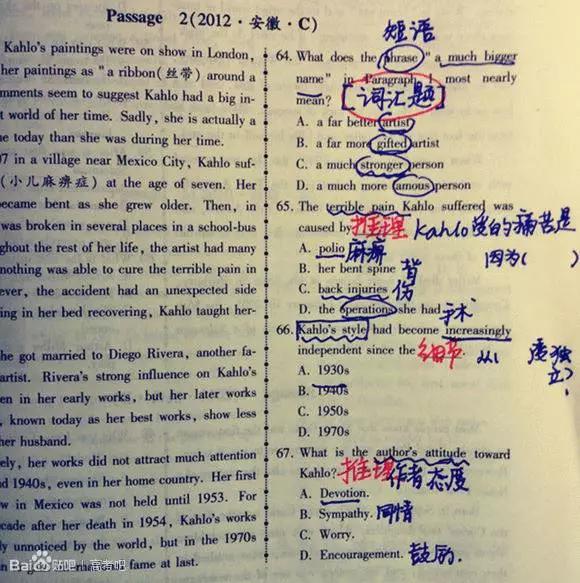 Passage 2(2012·安徽·C)
Kahlo's paintings were on show in London,
her paintings as "a ribbon(丝带) around a
mments seem to suggest Kahlo had a big in-
t world of her time. Sadly, she is actually a
e today than she was during her time.
07 in a village near Mexico City, Kahlo suf-
(小儿麻痹症) at the age of seven. Her
ecame bent as she grew older. Then, in
was broken in several places in a school-bus
ghout the rest of her life, the artist had many
nothing was able to cure the terrible pain in
ever, the accident had an unexpected side
ing in her bed recovering, Kahlo taught her-
he got married to Diego Rivera, another fa-
artist. Rivera's strong influence on Kahlo's
en in her early works, but her later works
, known today as her best works, show less
her husband.
ely, her works did not attract much attention
nd 1940s, even in her home country. Her first
w in Mexico was not held until 1953. For
cade after her death in 1954, Kahlo's works
ly unnoticed by the world, but in the 1970s
fame at last.
短语
64. What does the phrase "a much bigger
name" in Paragraph 1 most nearly
mean? [词汇题]
A. a far better artist
B. a far more gifted artist
C. a much stronger person
D. a much more famous person
65. The terrible pain Kahlo suffered was
caused by 推理 Kahlo受的痛苦是
因为( )
A. polio 麻痹
B. her bent spine 背
C. back injuries 伤
D. the operations she had 手术
66. Kahlo's style had become increasingly
independent since the 细节. 从
独
立?
A. 1930s
B. 1940s
C. 1950s
D. 1970s
67. What is the author's attitude toward
Kahlo? 推理 作者态度
A. Devotion.
B. Sympathy. 同情
C. Worry.
D. Encouragement. 鼓励.
Bai du 贴吧 高考吧